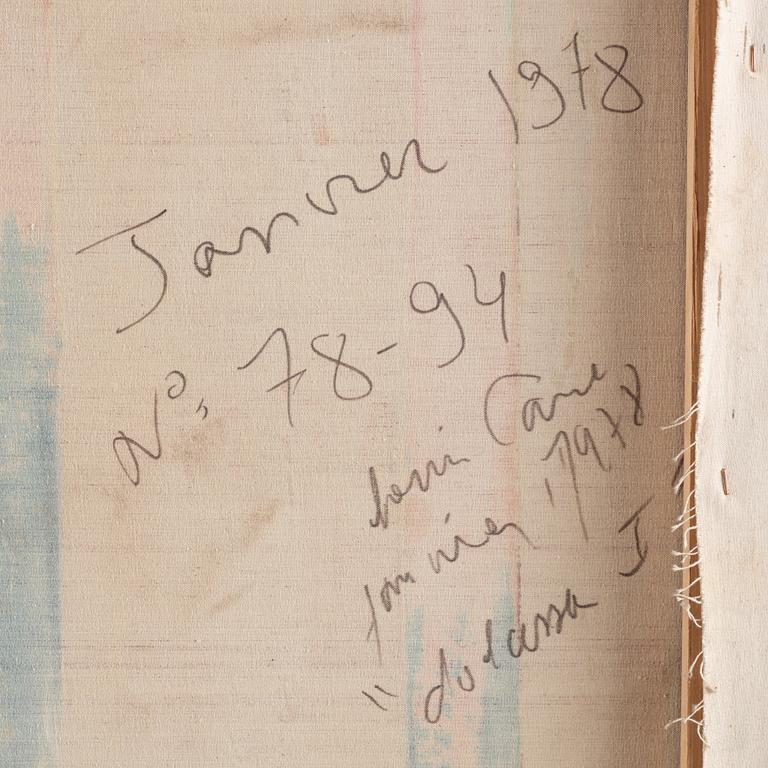 Janvier 1978
N°, 78-94
Louis Cane
janvier 1978
" dolassa I